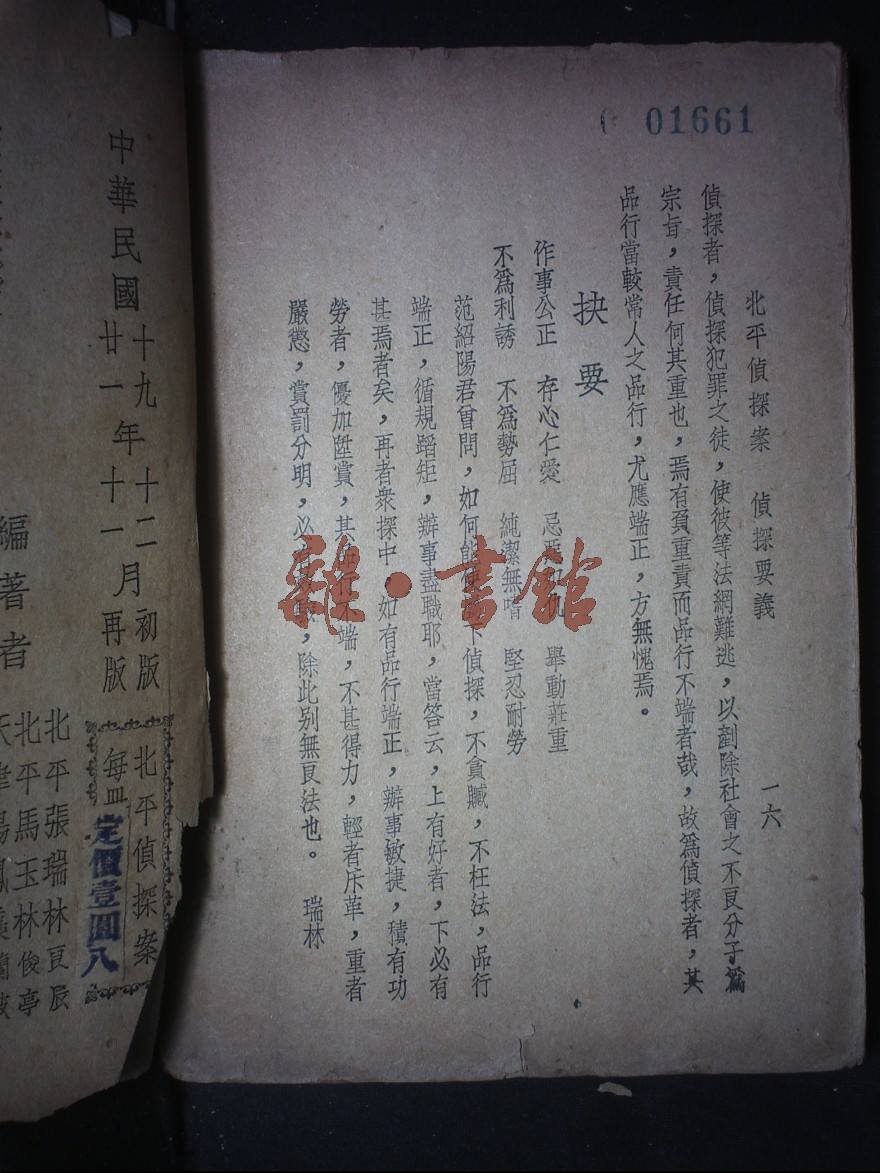 01661
北平偵探案　偵探要義　一六
偵探者，偵探犯罪之徒，使彼等法網難逃，以剷除社會之不良分子爲
宗旨，責任何其重也，焉有負重責而品行不端者哉，故爲偵探者，其
品行當較常人之品行，尤應端正，方無愧焉。
抉要
作事公正　存心仁愛　忌　　舉動莊重
不爲利誘　不爲勢屈　純潔無嗜　堅忍耐勞
范紹陽君曾問，如何能使　下偵探，不貪贓，不枉法，品行
端正，循規蹈矩，辦事盡職耶，當答云，上有好者，下必有
甚焉者矣，再者衆探中，如有品行端正，辦事敏捷，積有功
勞者，優加陞賞，其品行不端，不甚得力，輕者斥革，重者
嚴懲，賞罰分明，必　　，除此别無良法也。　瑞林
雜·書館
中華民國十九年十二月初版
廿一年十一月再版
北平偵探案
每皿定價壹圓八
編著者
北平張瑞林良辰
北平馬玉林俊亭